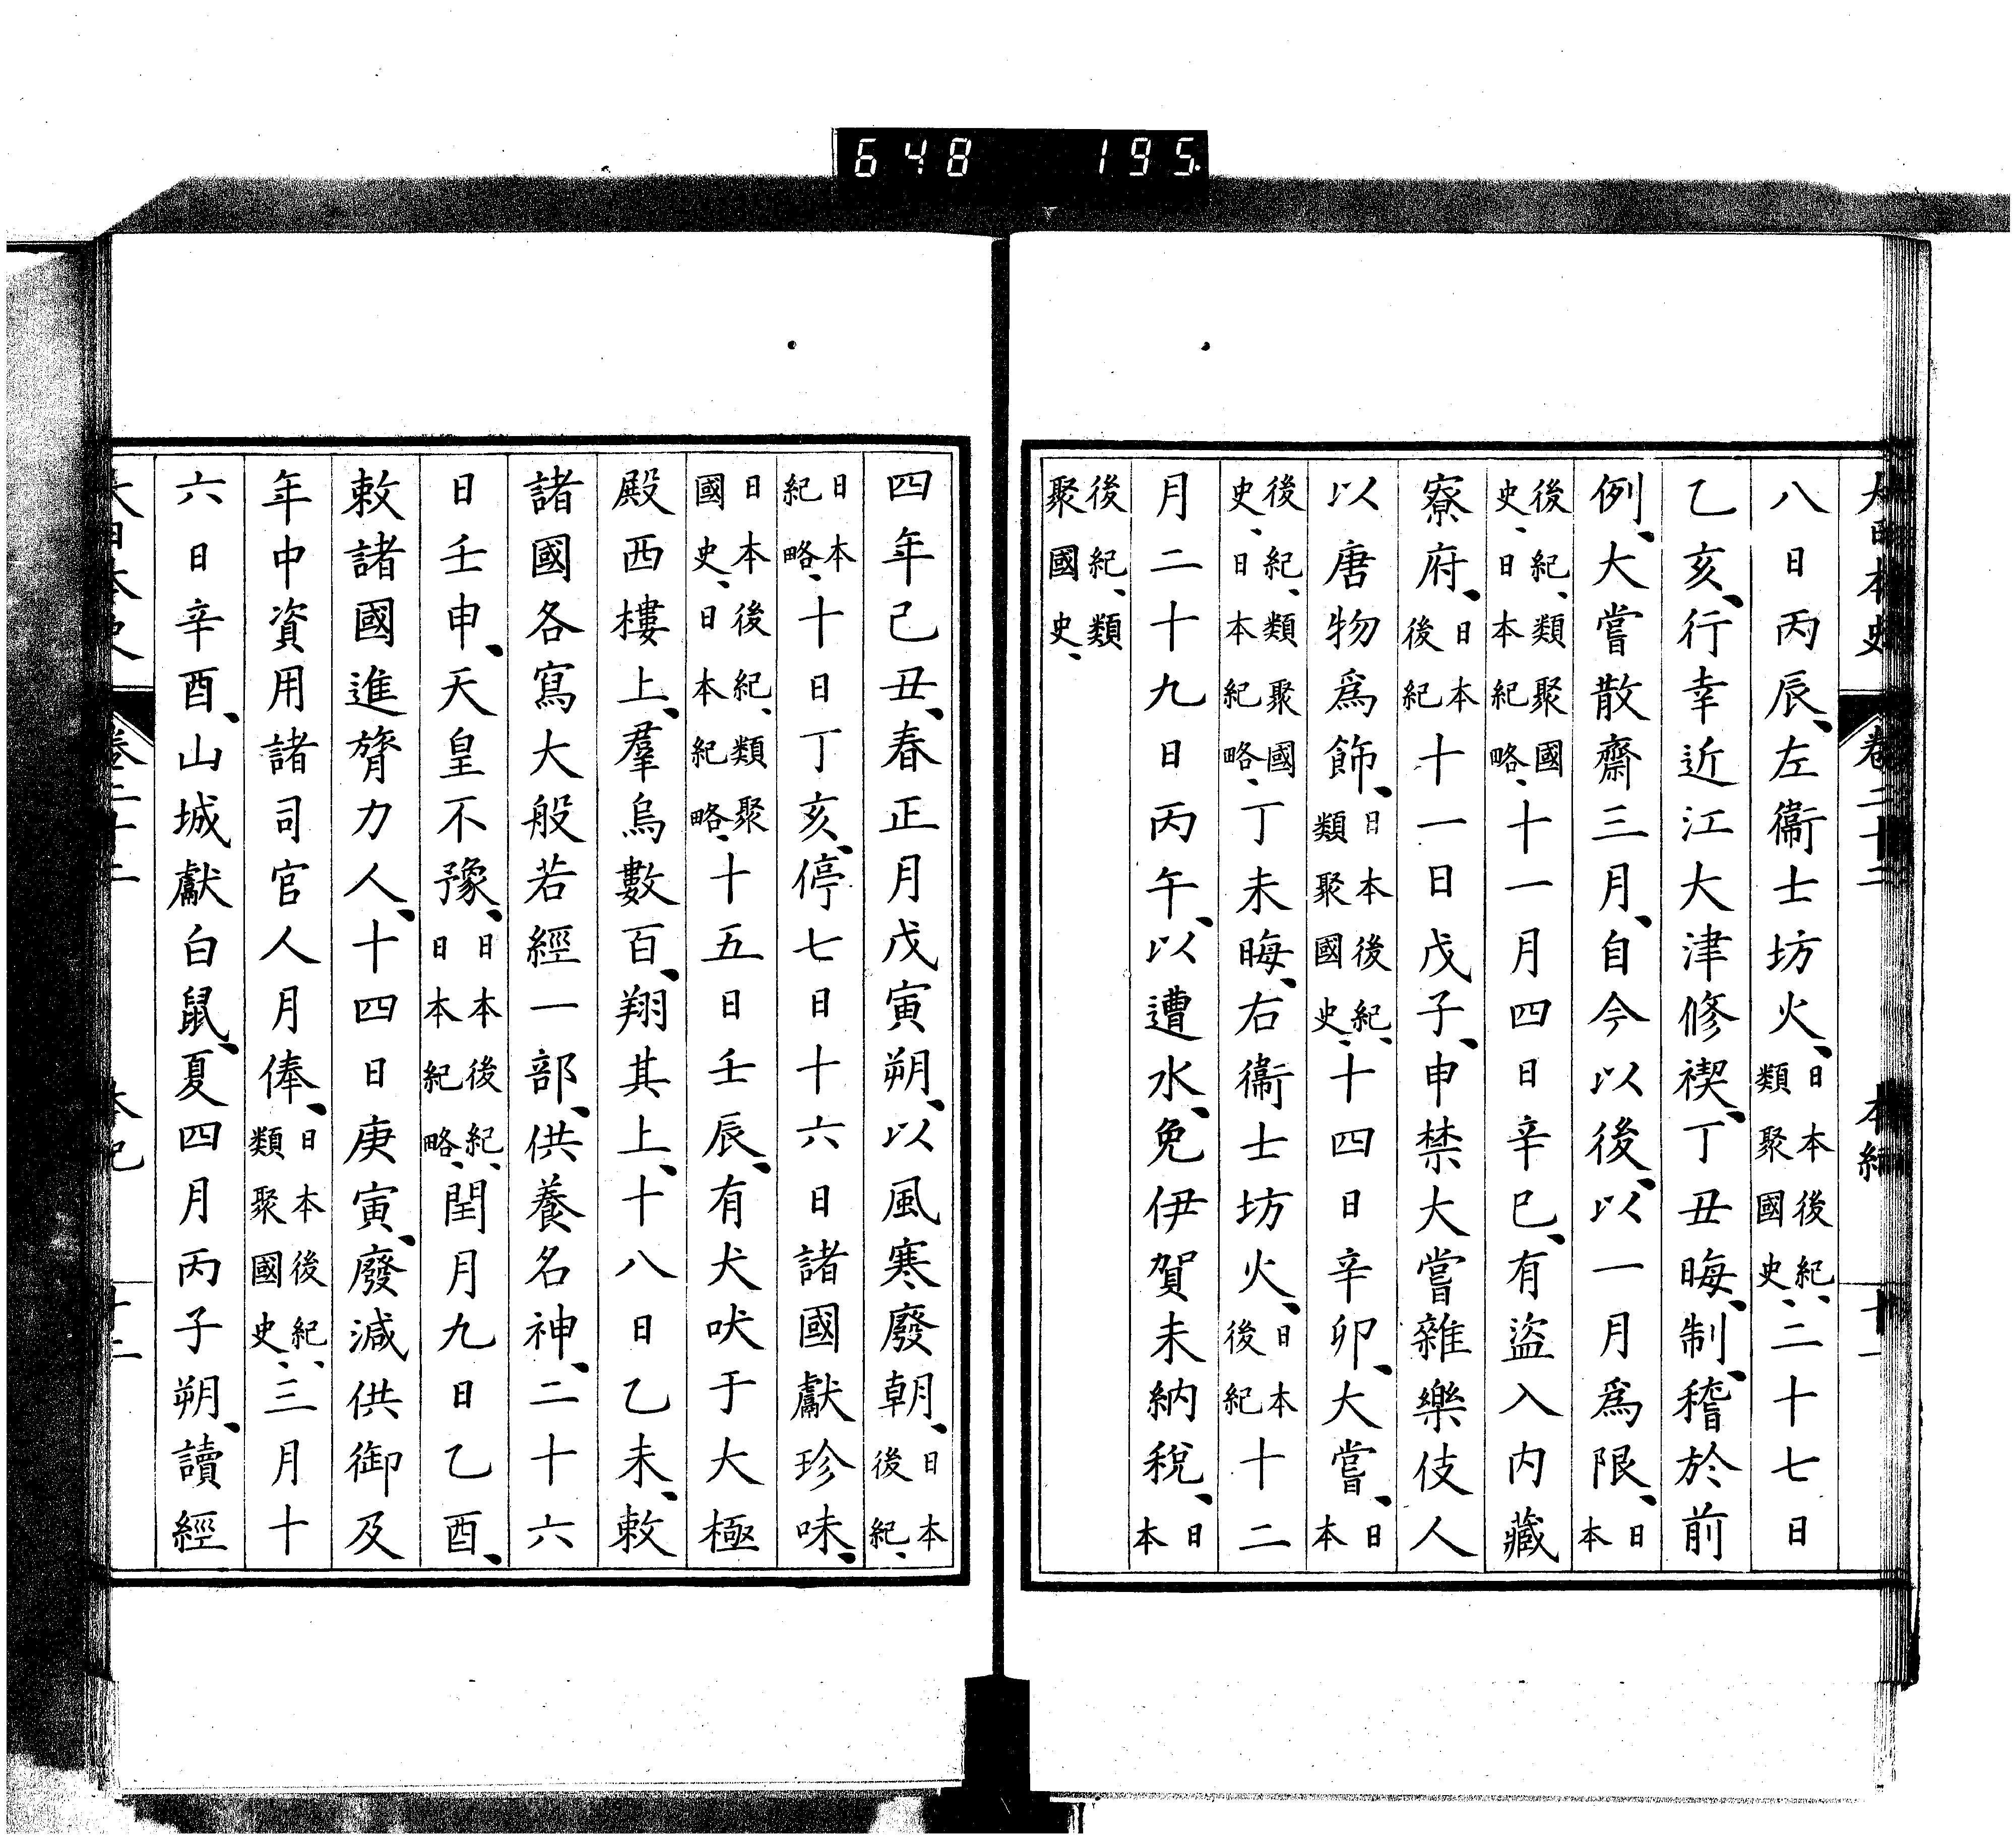 648 195
大日本史 卷二十二 本紀 十一
八日丙辰、左衞士坊火、日本後紀、類聚國史、二十七日
乙亥、行幸近江大津修禊、丁丑晦、制、稽於前
例、大嘗散齋三月、自今以後、以一月爲限、日本
後紀、類聚國史、日本紀略、十一月四日辛巳、有盜入内藏
寮府、日本後紀十一日戊子、申禁大嘗雜樂伎人
以唐物爲飾、日本後紀、類聚國史、十四日辛卯、大嘗、日本
後紀、類聚國史、日本紀略、丁未晦、右衞士坊火、日本後紀十二
月二十九日丙午、以遭水、免伊賀未納稅、日本
後紀、類聚國史、
四年己丑、春正月戊寅朔、以風寒廢朝、日本後紀、
日本紀略、十日丁亥、停七日十六日諸國獻珍味、
日本後紀、類聚國史、日本紀略、十五日壬辰、有犬吠于大極
殿西樓上、羣烏數百、翔其上、十八日乙未、敕
諸國各寫大般若經一部、供養名神、二十六
日壬申、天皇不豫、日本後紀、日本紀略、閏月九日乙酉、
敕諸國進膂力人、十四日庚寅、廢減供御及
年中資用諸司官人月俸、日本後紀、類聚國史、三月十
六日辛酉、山城獻白鼠、夏四月丙子朔、讀經